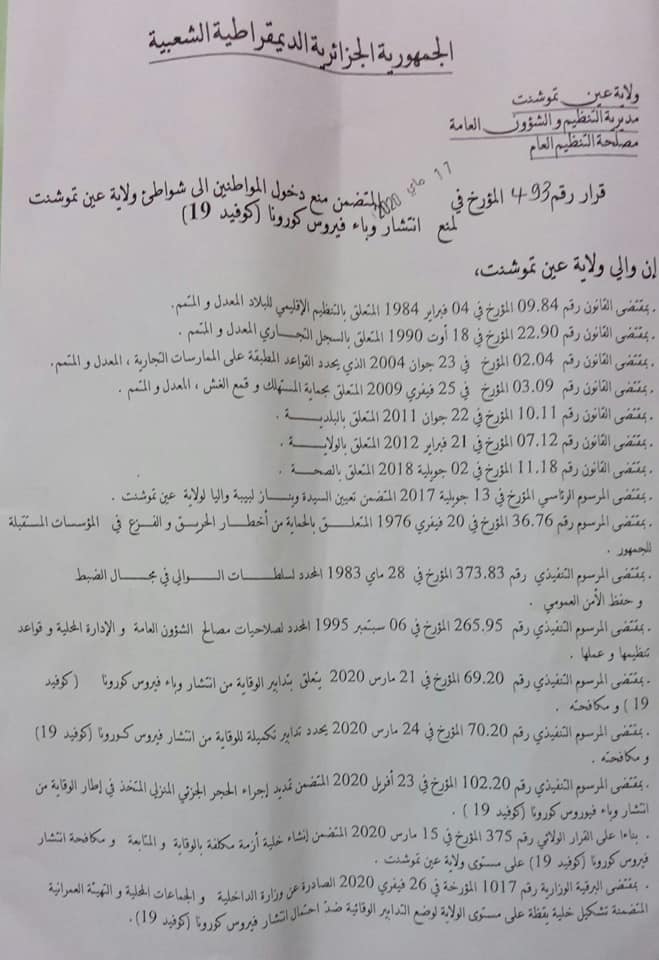 الجمهورية الجزائرية الديمقراطية الشعبية
ولاية عين تموشنت
مديرية التنظيم و الشؤون العامة
مصلحة التنظيم العام
قرار رقم 493 المؤرخ في 17 ماي 2020 المتضمن منع دخول المواطنين الى شواطئ ولاية عين تموشنت
لمنع انتشار وباء فيروس كورونا (كوفيد 19)
إن والي ولاية عين تموشنت،
. بمقتضى القانون رقم 09.84 المؤرخ في 04 فبراير 1984 المتعلق بالتنظيم الإقليمي للبلاد المعدل و المتمم.
. بمقتضى القانون رقم 22.90 المؤرخ في 18 أوت 1990 المتعلق بالسجل التجاري المعدل و المتمم .
. بمقتضى القانون رقم 02.04 المؤرخ في 23 جوان 2004 الذي يحدد القواعد المطبقة على الممارسات التجارية ، المعدل و المتمم.
. بمقتضى القانون رقم 03.09 المؤرخ في 25 فيفري 2009 المتعلق بحماية المستهلك و قمع الغش ، المعدل و المتمم .
. بمقتضى القانون رقم 10.11 المؤرخ في 22 جوان 2011 المتعلق بالبلديـــة .
. بمقتضى القانون رقم 07.12 المؤرخ في 21 فبراير 2012 المتعلق بالولايـــة .
. بمقتضى القانون رقم 11.18 المؤرخ في 02 جويلية 2018 المتعلق بالصحـــة .
. بمقتضى المرسوم الرئاسي المؤرخ في 13 جويلية 2017 المتضمن تعيين السيدة ويناز لبيبة واليا لولاية عين تموشنت .
. بمقتضى المرسوم رقم 36.76 المؤرخ في 20 فيفري 1976 المتعلـــق بالحماية من أخطار الحريق و الفزع في المؤسسات المستقبلة
للجمهور .
. بمقتضى المرسوم التنفيذي رقم 373.83 المؤرخ في 28 ماي 1983 المحدد لسلطـات الـــوالي في مجـــال الضبط
و حفظ الأمن العمومي .
. بمقتضى المرسوم التنفيذي رقم 265.95 المؤرخ في 06 سبتمبر 1995 المحدد لصلاحيات مصالح الشؤون العامة و الإدارة المحلية و قواعد
تنظيمها و عملها .
. بمقتضى المرسوم التنفيذي رقم 69.20 المؤرخ في 21 مارس 2020 يتعلق بتدابير الوقاية من انتشار وباء فيروس كورونا (كوفيد
19 ) و مكافحته .
. بمقتضى المرسوم التنفيذي رقم 70.20 المؤرخ في 24 مارس 2020 يحدد تدابير تكميلة للوقاية من انتشار فيروس كـورونا (كوفيد 19)
و مكافحته .
. بمقتضى المرسوم التنفيذي رقم 102.20 المؤرخ في 23 أفريل 2020 المتضمن تمديد إجراء الحجر الجزئي المنزلي المتخذ في إطار الوقاية من
انتشار وباء فيوروس كورونا (كوفيد 19 ) .
. بناءا على القرار الولائي رقم 375 المؤرخ في 15 مارس 2020 المتضمن إنشاء خلية أزمة مكلفة بالوقاية و المتابعة و مكافحة انتشار
فيروس كورونا (كوفيد 19) على مستوى ولاية عين تموشنت .
. بمقتضى البرقية الوزارية رقم 1017 المؤرخة في 26 فيفري 2020 الصادرة عن وزارة الداخلية و الجماعات المحلية و التهيئة العمرانية
المتضمنة تشكيل خلية يقظة على مستوى الولاية لوضع التدابير الوقائية ضدّ احتمال انتشار فيروس كورونا (كوفيد 19).